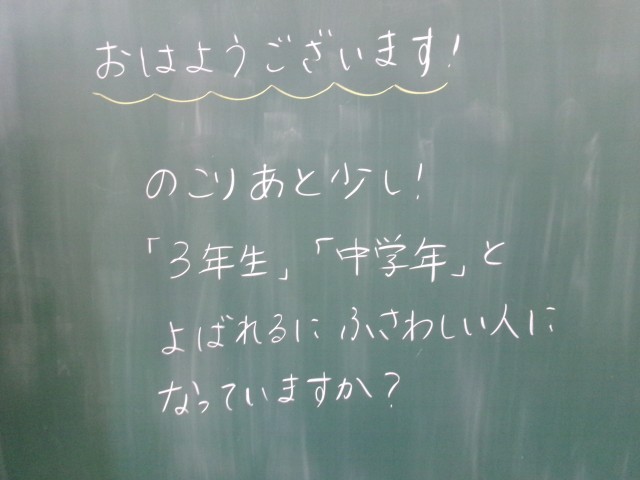 おはようございます!
のこりあと少し!
「3年生」「中学年」と
よばれるに ふさわしい人に
なっていますか?